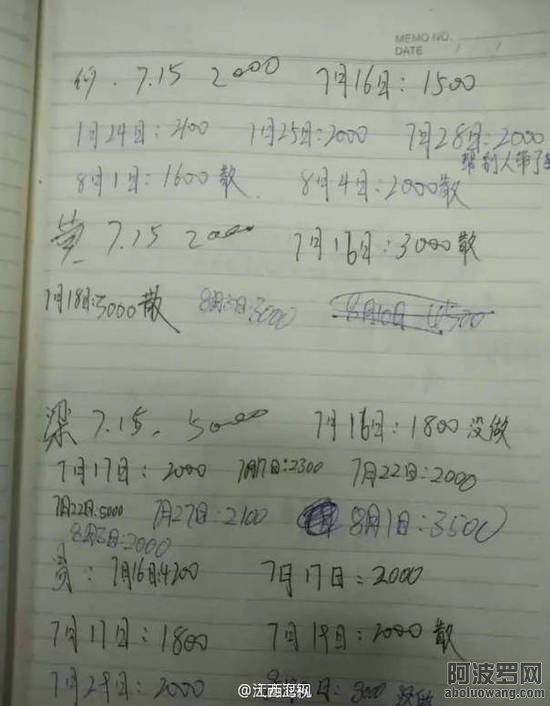 MEMO NO.
DATE / /
7.15 2000 7月16日: 1500
1月24日: 2100 1月25日: 2000 7月28日: 2000
帮别人带了
8月1日: 1600 散 8月4日: 2000 散
黄 7.15 2000 7月16日: 3000 散
7月18日: 5000 散 8月3日: 3000 8月10日 4500
梁 7.15. 5000 7月16日: 1800 没做
7月17日: 2000 7月17日: 2300 7月22日: 2000
7月22日: 5000 7月27日: 2100 8月1日: 3500
8月3日: 2000
员: 7月16日: 4200 7月17日: 2000
7月17日: 1800 7月19日: 2000 散
7月29日: 2000 3000 没做
@江西卫视
阿波罗网
aboluowang.com